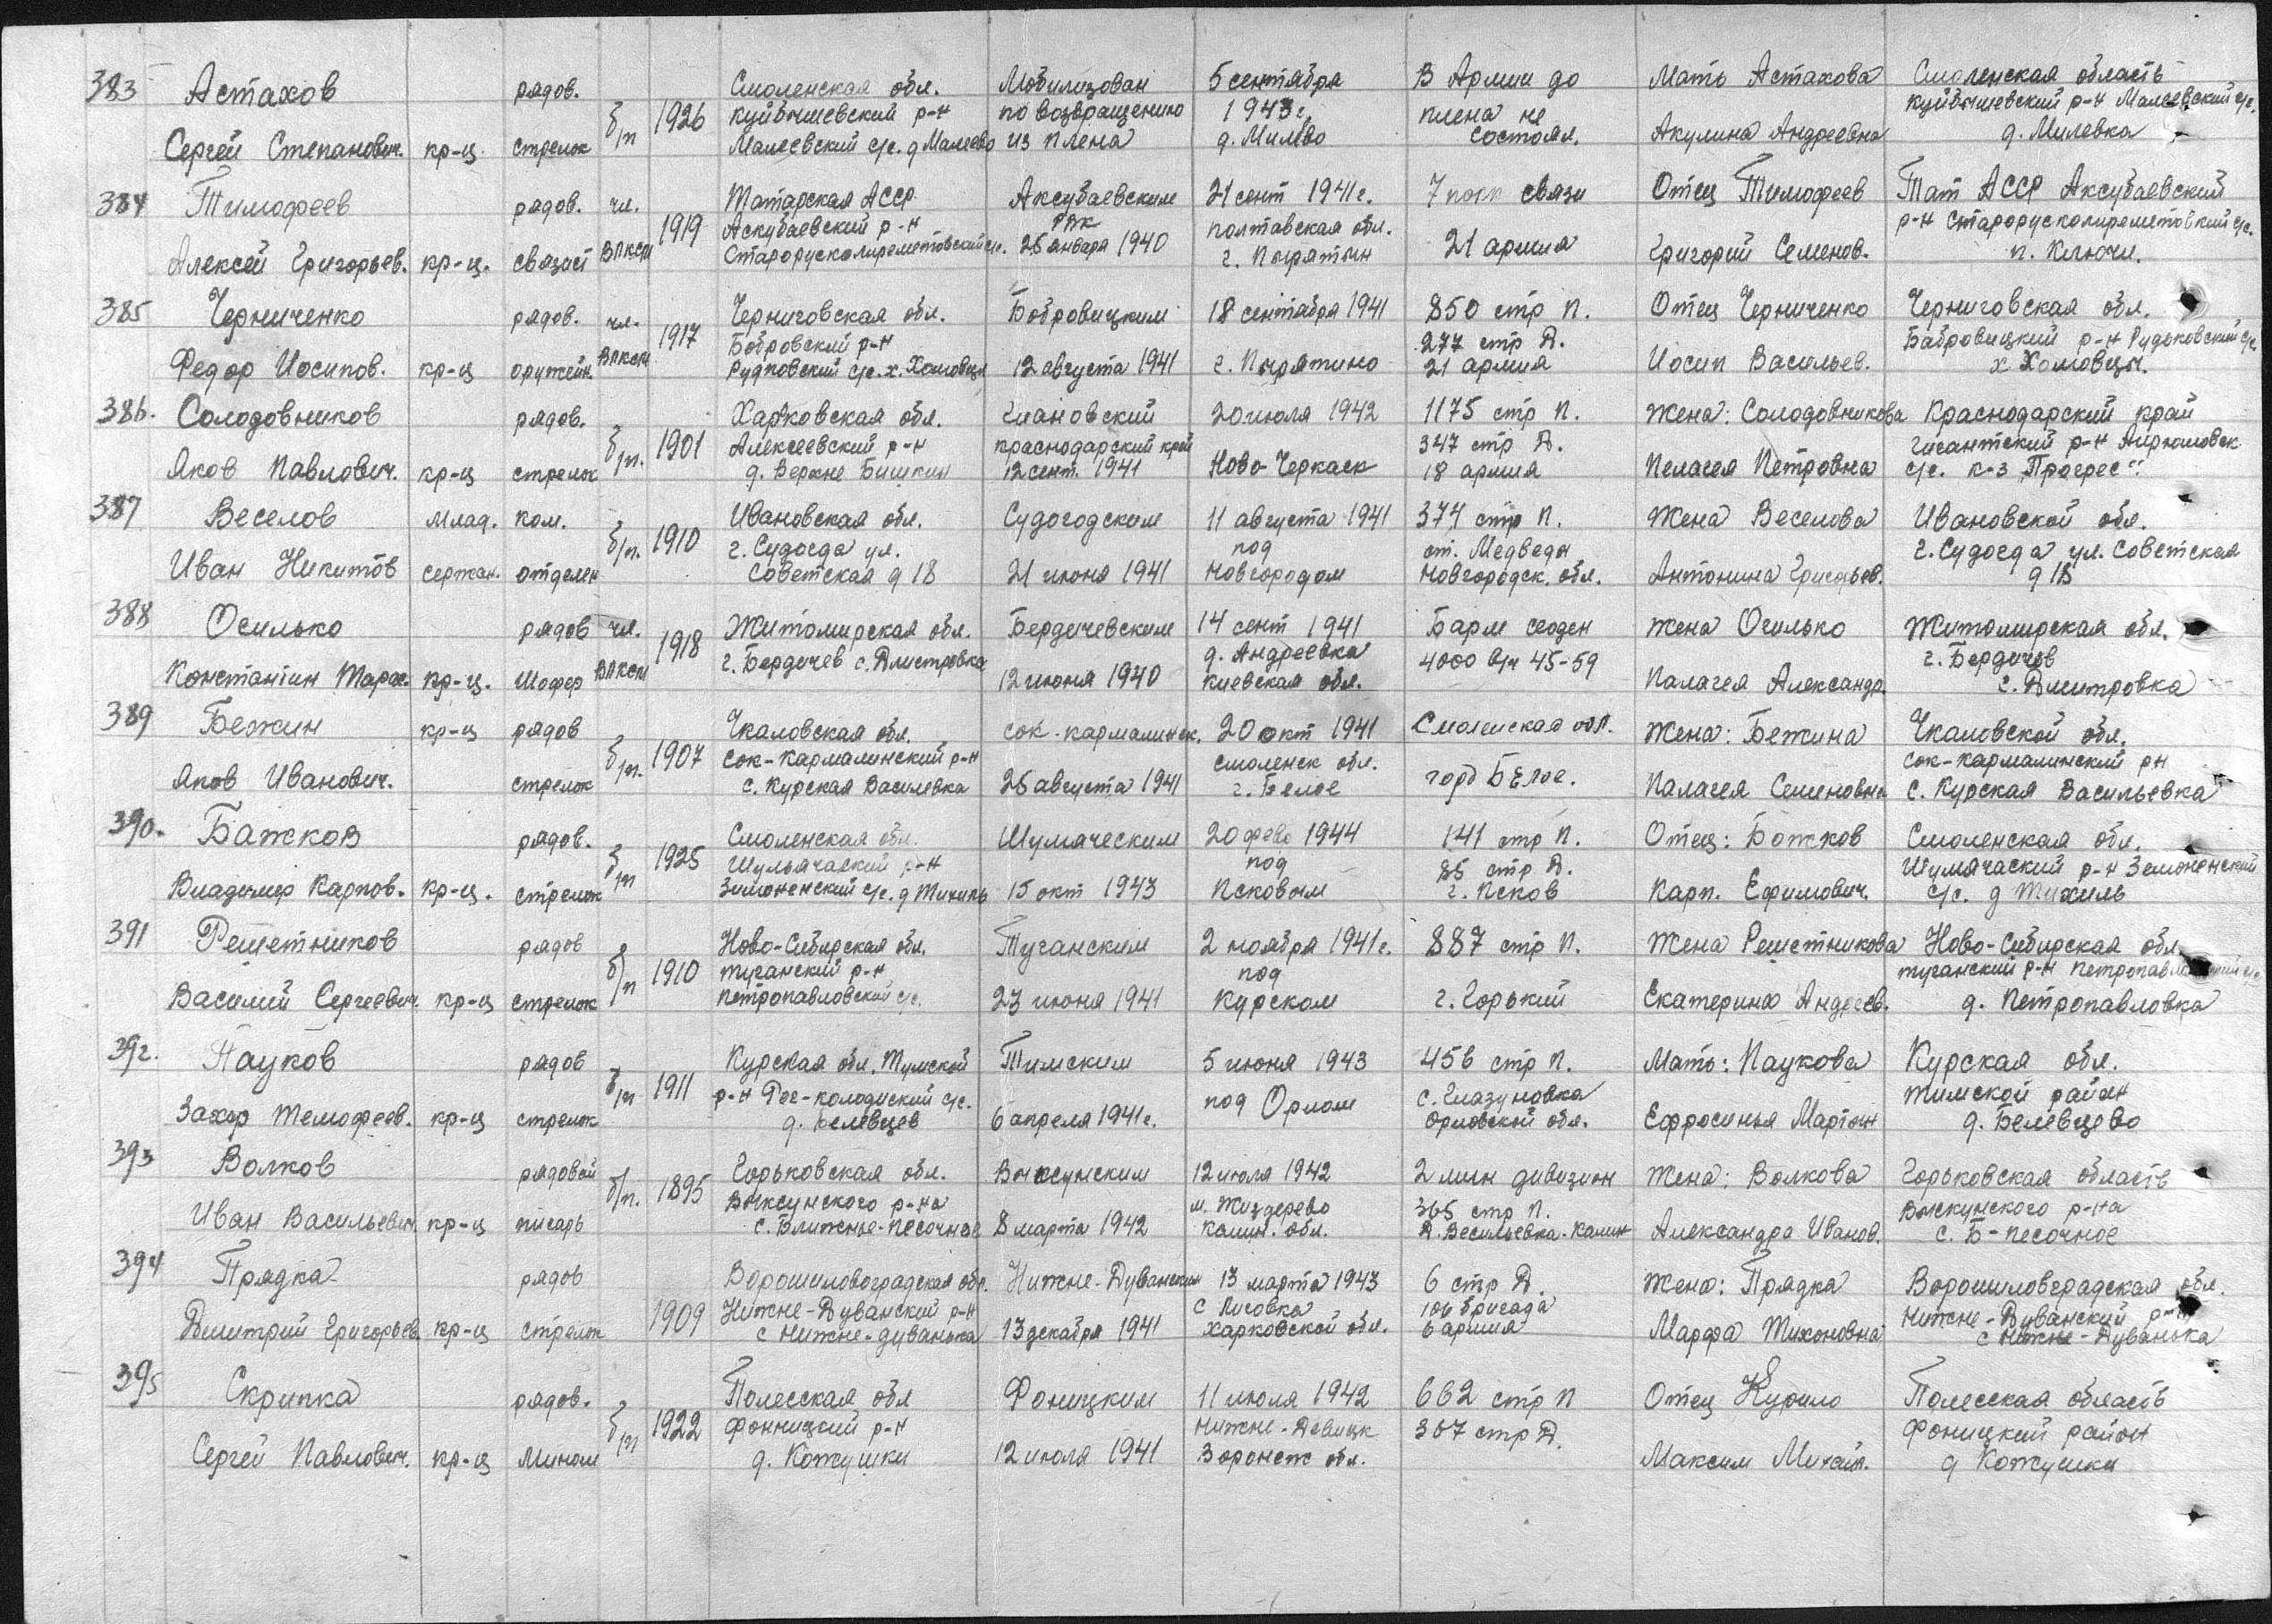 383 Астахов рядов. Смоленская обл. Мобилизован 5 сентября В Армии до Мать Астахова Смоленская область
б/п 1926 Куйбышевский р-н по возвращению 1943г. плена не Куйбышевский р-н Малеевский с/с.
Сергей Степанович. кр-ц. стрелок Малеевский с/с. д Малеево из плена д. Милево состоял. Акулина Андреевна д. Милевка
384 Тимофеев рядов. чл. Татарская АССР Аксубаевским 21 сент 1941г. 7 полк связи Отец Тимофеев Тат АССР Аксубаевский
1919 Аскубаевский р-н РВК полтавская обл. р-н
Алексей Григорьев. кр-ц. связист ВЛКСМ 25 января 1940 г. Пырятин 21 армия Григорий Семенов. п. Ключи.
385 Черниченко рядов. чл. Черниговская обл. Бобровицким 18 сентября 1941 850 стр п. Отец Черниченко Черниговская обл.
1917 Бобровский р-н 277 стр Д. Бабровицкий р-н Рудьковский с/с.
Федор Иосипов. кр-ц оружейн. ВЛКСМ Рудковский с/с. х. Хомовцы 12 августа 1941 г. Пырятино 21 армия Иосип Васильев. х Хомовцы.
386. Солодовников рядов. Харковская обл. Гиановский 20 июля 1942 1175 стр п. Жена: Солодовникова Краснодарский край
б/п. 1901 Алексеевский р-н краснодарский край 347 стр Д. гигантский р-н
Яков Павлович. кр-ц стрелок д. Верхне Бишкин 12 сент. 1941 Ново-Черкаск 18 армия Пелагея Петровна с/с. к-з „Прогрес"
387 Веселов Млад. ком. Ивановская обл. Судогодским 11 августа 1941 374 стр п. Жена Веселова Ивановской обл.
б/п. 1910 г. Судогда ул. под ст. Медведь г. Судогда ул. Советская
Иван Никитов сержан. отделен Советская д 18 21 июня 1941 Новгородом Новгородск. обл. Антонина Григорьев. д 18
388 Осилько рядов чл. Житомирская обл. Бердичевским 14 сент 1941 Барм Жена Осилько Житомирская обл.
1918 г. Бердичев с. Дмитровка д. Андреевка 4000 в/ч 45-59 г. Бердичев
Константин Тарас. кр-ц. Шофер ВЛКСМ 12 июня 1940 Киевская обл. Палагея Александр. с. Дмитровка
389 Бежин кр-ц рядов Чкаловская обл. сок-кармалинск. 20 окт 1941 Смоленская обл. Жена: Бежина Чкаловской обл.
б/п. 1907 Сок-Кармалинский р-н смоленск обл. Сок-Кармалинский рн
Яков Иванович. стрелок с. Курская Василевка 25 августа 1941 г. Белое горд Белое. Палагея Семеновна с. Курская Васильевка
390. Бажков рядов. Смоленская обл. Шумяческим 20 февр 1944 141 стр п. Отец: Божков Смоленская обл.
б/п 1925 Шумячаский р-н под 85 стр Д. Шумячаский р-н Земоненский
Владимир Карпов. кр-ц. стрелок Зимоненский с/с. д Тихиль 15 окт 1943 Псковом г. Псков Карп. Ефимович. с/с. д Тихиль
391 Решетников рядов Ново-Сибирская обл. Туганским 2 ноября 1941г. 887 стр п. Жена Решетникова Ново-Сибирская обл
б/п 1910 туганский р-н под туганский р-н Петропавловский с/с
Василий Сергеевич. кр-ц стрелок Петропавловский с/с. 23 июня 1941 Курском г. Горький Екатерина Андреев. д. Петропавловка
392. Пауков рядов Курская обл. Тимской Тимским 5 июня 1943 456 стр п. Мать: Паукова Курская обл.
б/п 1911 р-н Рог-колодиский с/с. с. Глазуновка тимской район
Захар Темофеев. кр-ц стрелок д. Белевцев 6 апреля 1941г. под Орлом Орловской обл. Ефросинья Мартын д. Белевцево
393 Волков рядовой Горьковская обл. Выксунским 12 июля 1942 2 мин дивизион Жена: Волкова Горьковская область
б/п. 1895 Выксунского р-на м. Жиздерево 365 стр п. Выскунского р-на
Иван Васильевич. кр-ц писарь с. Ближнье-Песочное 8 марта 1942 Калин. обл. Д. Весильевка. Калин Александра Иванов. с. Б-песочное
394 Прядка рядов Ворошиловоградская обл. Нижне-Дуванским 13 марта 1943 6 стр Д. Жена: Прядка Ворошиловградская обл.
1909 Нижне-Дуванский р-н с Лисовка 106 бригада Нижне-Дуванский р-н
Дмитрий Григорьев. кр-ц стрелок с Нижне-дуванька 13 декабря 1941 Харковской обл. 6 армия Марфа Тихоновна с Нижне-Дуванька
395 Скрипка рядов. Полесская обл Фоницким 11 июля 1942 662 стр п Отец Курило Полесская область
б/п 1922 Фонницкий р-н Нижне-Девицк 307 стр Д. Фоницкий район
Сергей Павлович. кр-ц Мином д. Кожушки 12 июля 1941 Воронеж обл. Максим Михайл. д Кожушки